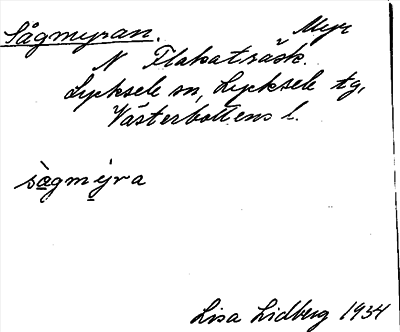 Sågmyran. Myr
N Flakaträsk.
Lycksele sn, Lycksele tg,
Västerbottens l.
sàgmýra
Lisa Lidberg 1934